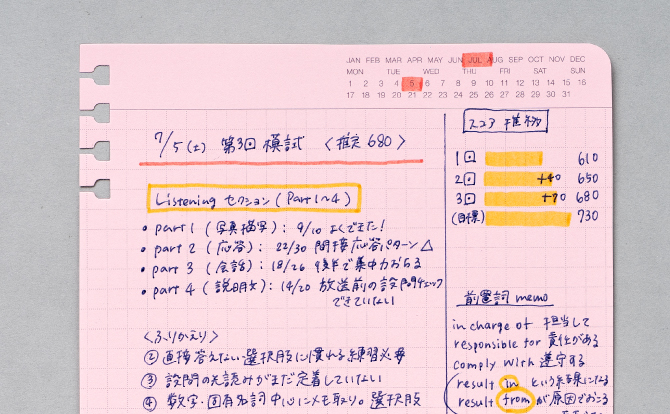 JAN FEB MAR APR MAY JUN JUL AUG SEP OCT NOV DEC
MON TUE WED THU FRI SAT SUN
1 2 3 4 5 6 7 8 9 10 11 12 13 14 15 16
17 18 19 20 21 22 23 24 25 26 27 28 29 30 31
7/5(土) 第3回 模試 〈推定 680〉
Listening セクション(Part1~4)
• part 1 (写真描写): 9/10 よくできた!
• part 2 (応答): 22/30 間接応答パターン△
• part 3 (会話): 18/26 後半で集中力おちる
• part 4 (説明文): 14/20 放送前の設問チェック
できていない
〈ふりかえり〉
② 直接答えない選択肢に慣れる練習必要
③ 設問の先読みがまだ定着していない
④ 数字・固有名詞中心にメモ取り。選択肢
スコア推移
1回 610
2回 +40 650
3回 +70 680
(目標) 730
前置詞 memo
in charge of 担当して
responsible for 責任がある
comply with 遵守する
result in という結果になる
result from が原因でおこる